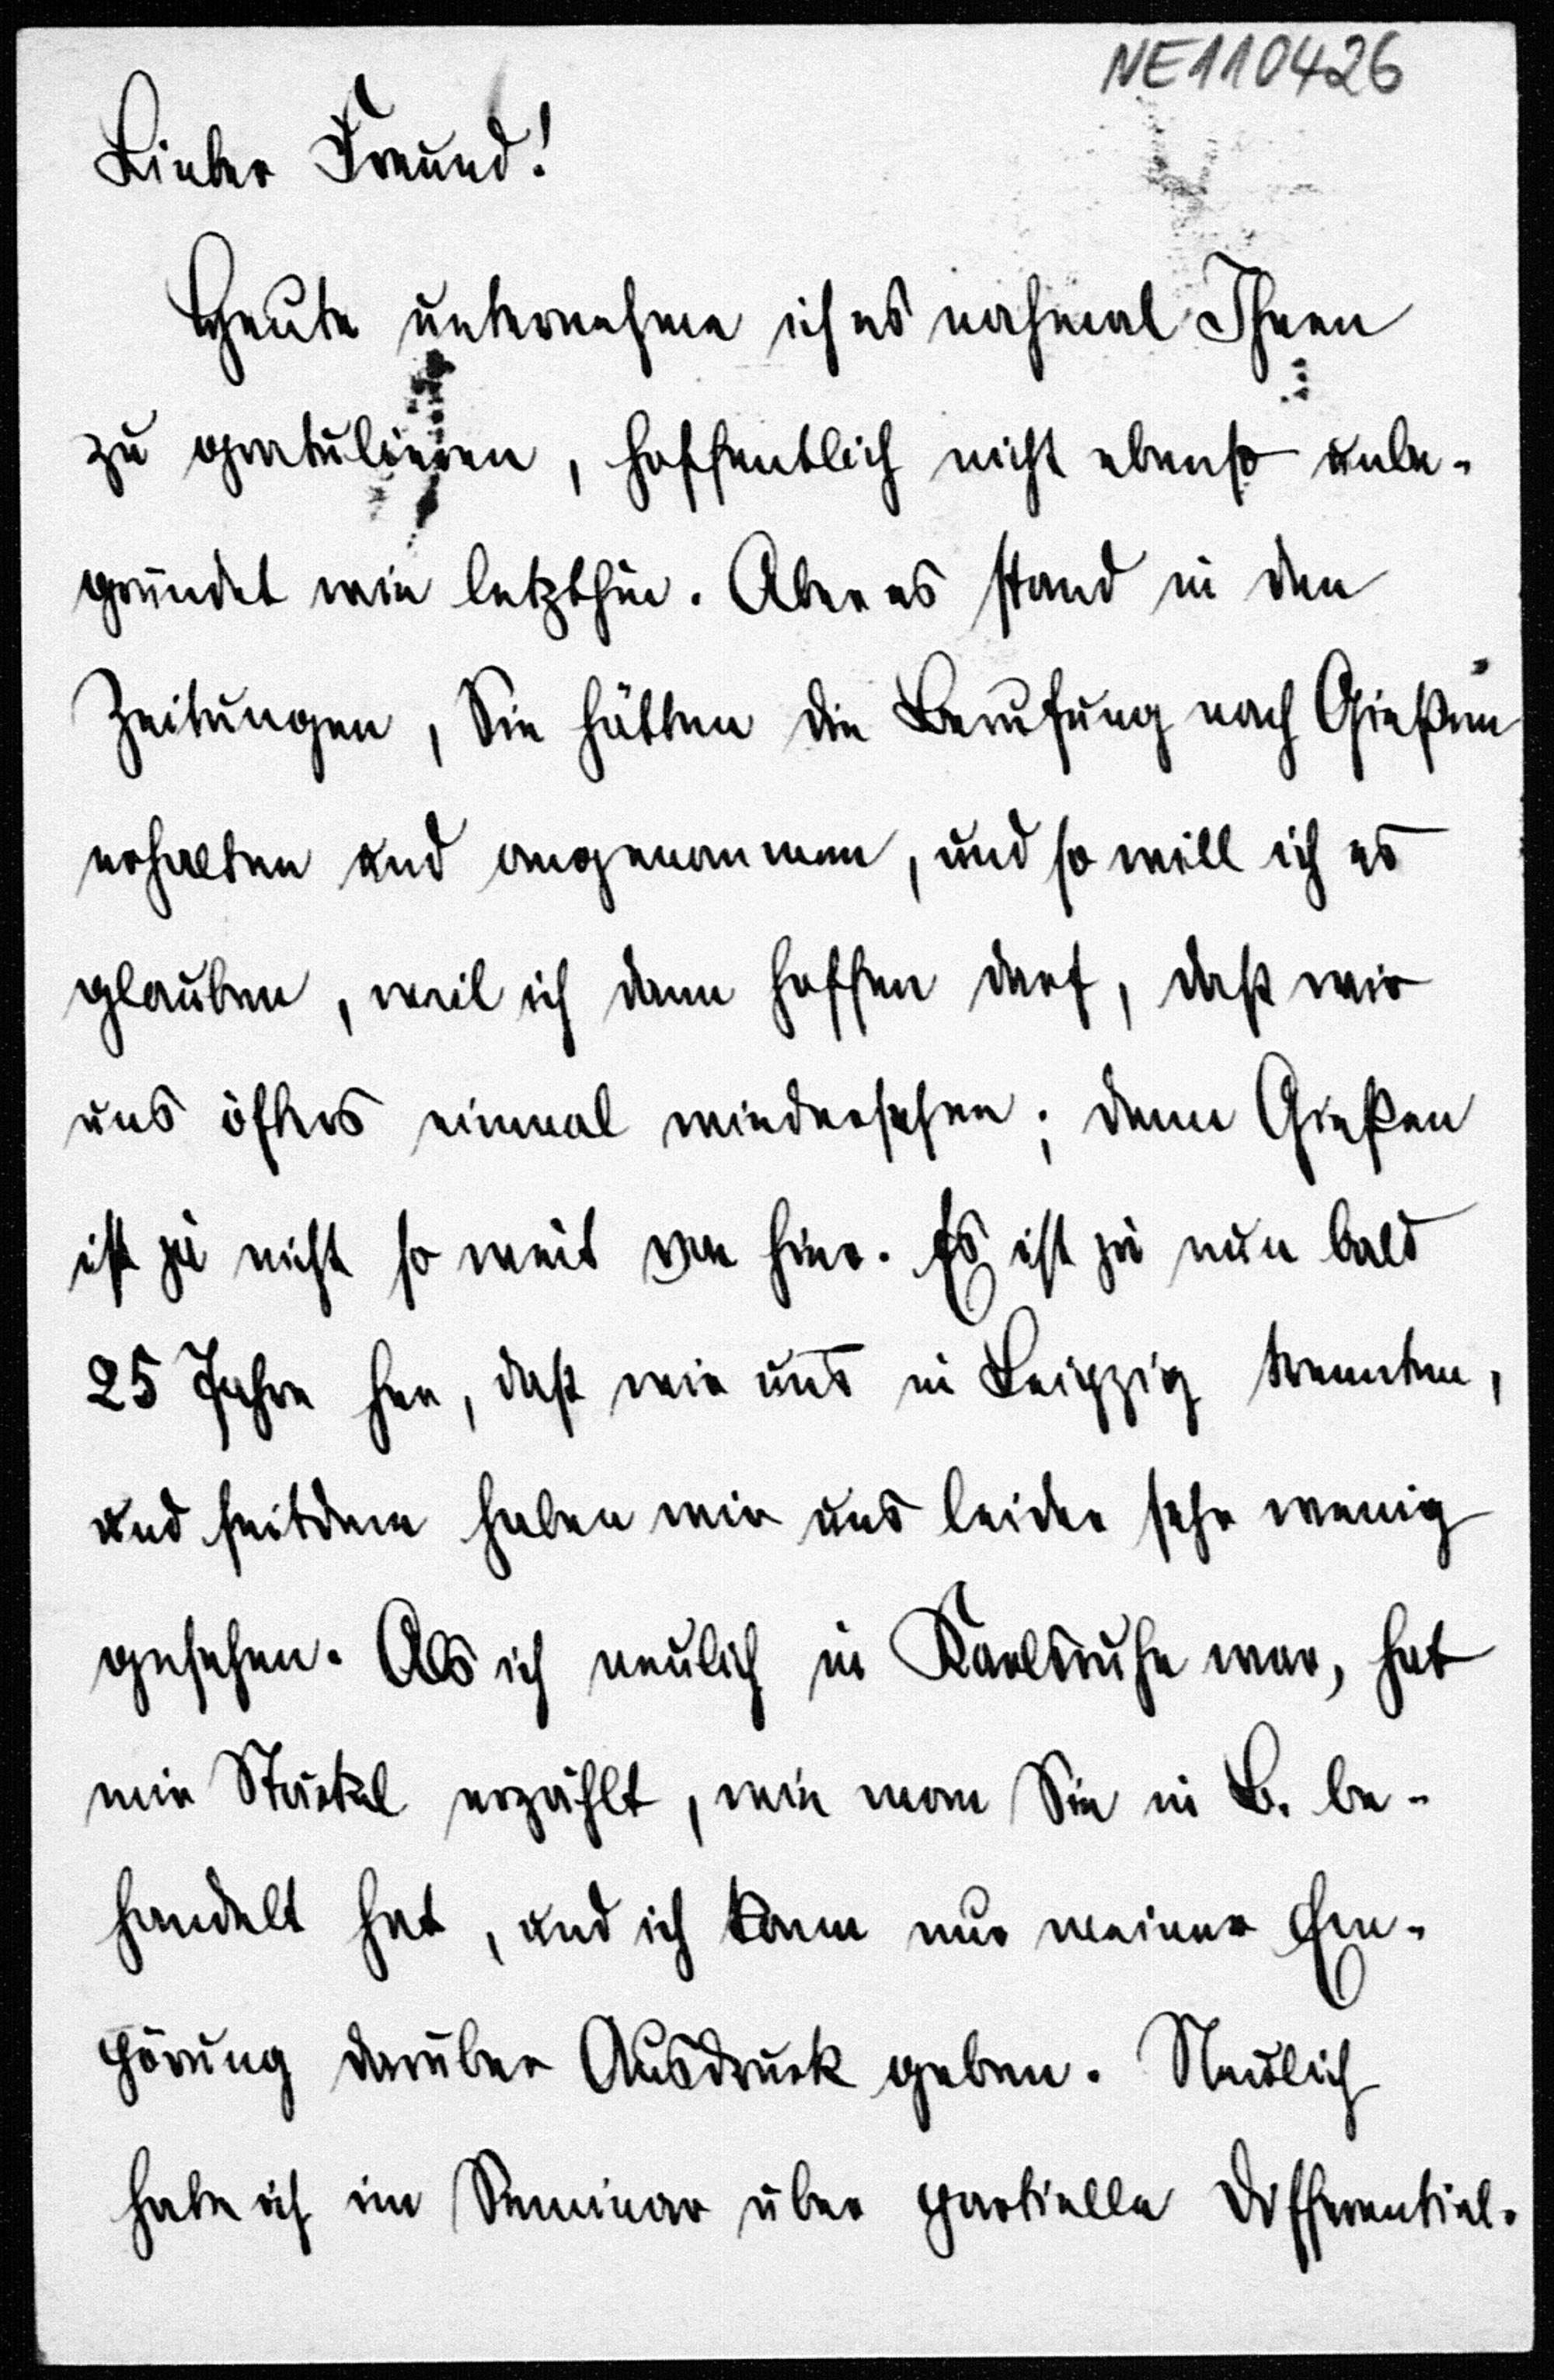 NE110426
Lieber Freund!
Heute unternehme ich es nochmal Ihnen
zu gratulieren, hoffentlich nicht ebenso unbe-
gründet wie letzthin. Aber es stand in den
Zeitungen, Sie hätten die Berufung nach Gießen
erhalten und angenommen, und so will ich es
glauben, weil ich dann hoffen darf, daß wir
uns öfters einmal wiedersehen; denn Gießen
ist ja nicht so weit von hier. Es ist ja nun bald
25 Jahre her, daß wir uns in Leipzig trennten,
und seitdem haben wir uns leider sehr wenig
gesehen. Als ich neulich in Karlsruhe war, hat
mir Stäckel erzählt, wie man Sie in B. be-
handelt hat, und ich kann nur meiner Em-
pörung darüber Ausdruck geben. Neulich
habe ich im Seminar über partielle Differential-